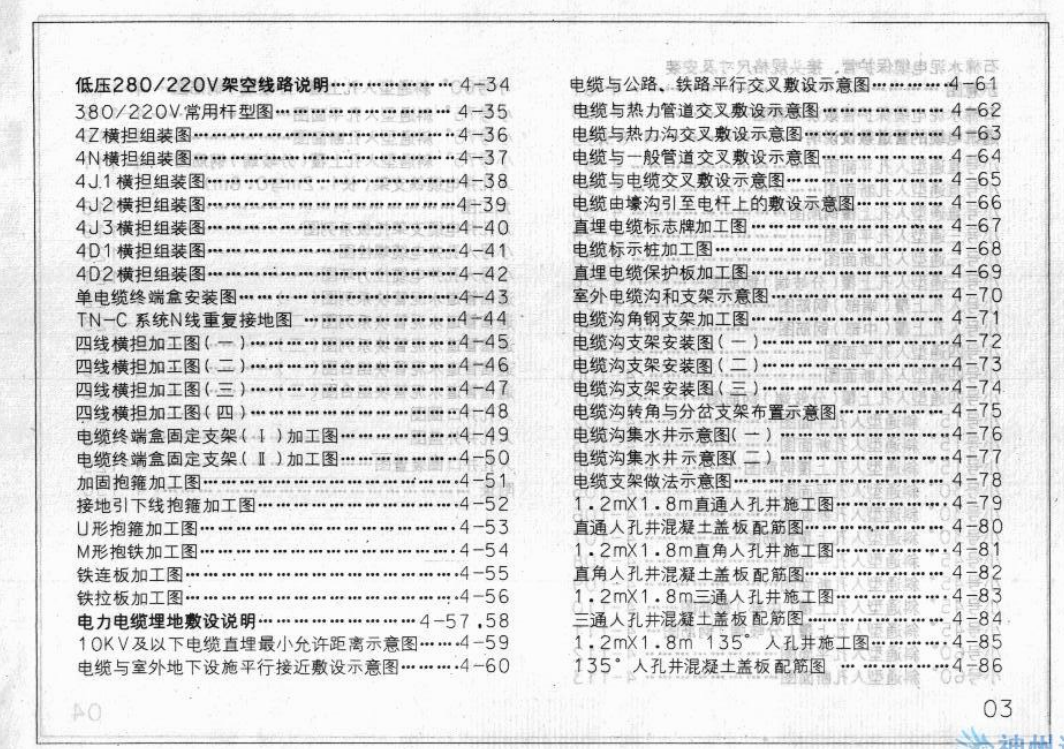 低压280/220V架空线路说明……………4-34
380/220V常用杆型图……………………4-35
4Z横担组装图……………………………4-36
4N横担组装图……………………………4-37
4J1横担组装图……………………………4-38
4J2横担组装图……………………………4-39
4J3横担组装图……………………………4-40
4D1横担组装图……………………………4-41
4D2横担组装图……………………………4-42
单电缆终端盒安装图………………………4-43
TN-C系统N线重复接地图 ………………4-44
四线横担加工图(一)……………………4-45
四线横担加工图(二)……………………4-46
四线横担加工图(三)……………………4-47
四线横担加工图(四)……………………4-48
电缆终端盒固定支架(Ⅰ)加工图…………4-49
电缆终端盒固定支架(Ⅱ)加工图…………4-50
加固抱箍加工图……………………………4-51
接地引下线抱箍加工图……………………4-52
U形抱箍加工图……………………………4-53
M形抱铁加工图……………………………4-54
铁连板加工图………………………………4-55
铁拉板加工图………………………………4-56
电力电缆埋地敷设说明………………4-57.58
10KV及以下电缆直埋最小允许距离示意图……4-59
电缆与室外地下设施平行接近敷设示意图………4-60
电缆与公路、铁路平行交叉敷设示意图…………4-61
电缆与热力管道交叉敷设示意图………………4-62
电缆与热力沟交叉敷设示意图…………………4-63
电缆与一般管道交叉敷设示意图………………4-64
电缆与电缆交叉敷设示意图……………………4-65
电缆由壕沟引至电杆上的敷设示意图…………4-66
直埋电缆标志牌加工图…………………………4-67
电缆标示桩加工图………………………………4-68
直埋电缆保护板加工图…………………………4-69
室外电缆沟和支架示意图………………………4-70
电缆沟角钢支架加工图…………………………4-71
电缆沟支架安装图(一)………………………4-72
电缆沟支架安装图(二)………………………4-73
电缆沟支架安装图(三)………………………4-74
电缆沟转角与分岔支架布置示意图……………4-75
电缆沟集水井示意图(一)……………………4-76
电缆沟集水井示意图(二)……………………4-77
电缆支架做法示意图……………………………4-78
1.2mX1.8m直通人孔井施工图………………4-79
直通人孔井混凝土盖板配筋图…………………4-80
1.2mX1.8m直角人孔井施工图………………4-81
直角人孔井混凝土盖板配筋图…………………4-82
1.2mX1.8m三通人孔井施工图………………4-83
三通人孔井混凝土盖板配筋图…………………4-84
1.2mX1.8m 135° 人孔井施工图……………4-85
135° 人孔井混凝土盖板配筋图 ……………4-86
03